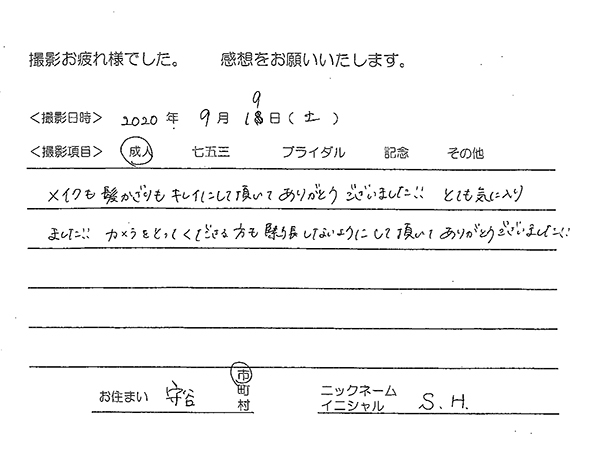 撮影お疲れ様でした。 感想をお願いいたします。
9
<撮影日時> 2020 年 9 月 18 日(土)
<撮影項目> 成人 七五三 ブライダル 記念 その他
メイクも髪かざりもキレイにして頂いてありがとうございました!! とても気に入り
ました!! カメラをとってくださる方も緊張しないようにして頂いてありがとうございました!!
お住まい 守谷 市 町 村
ニックネーム
イニシャル S.H.